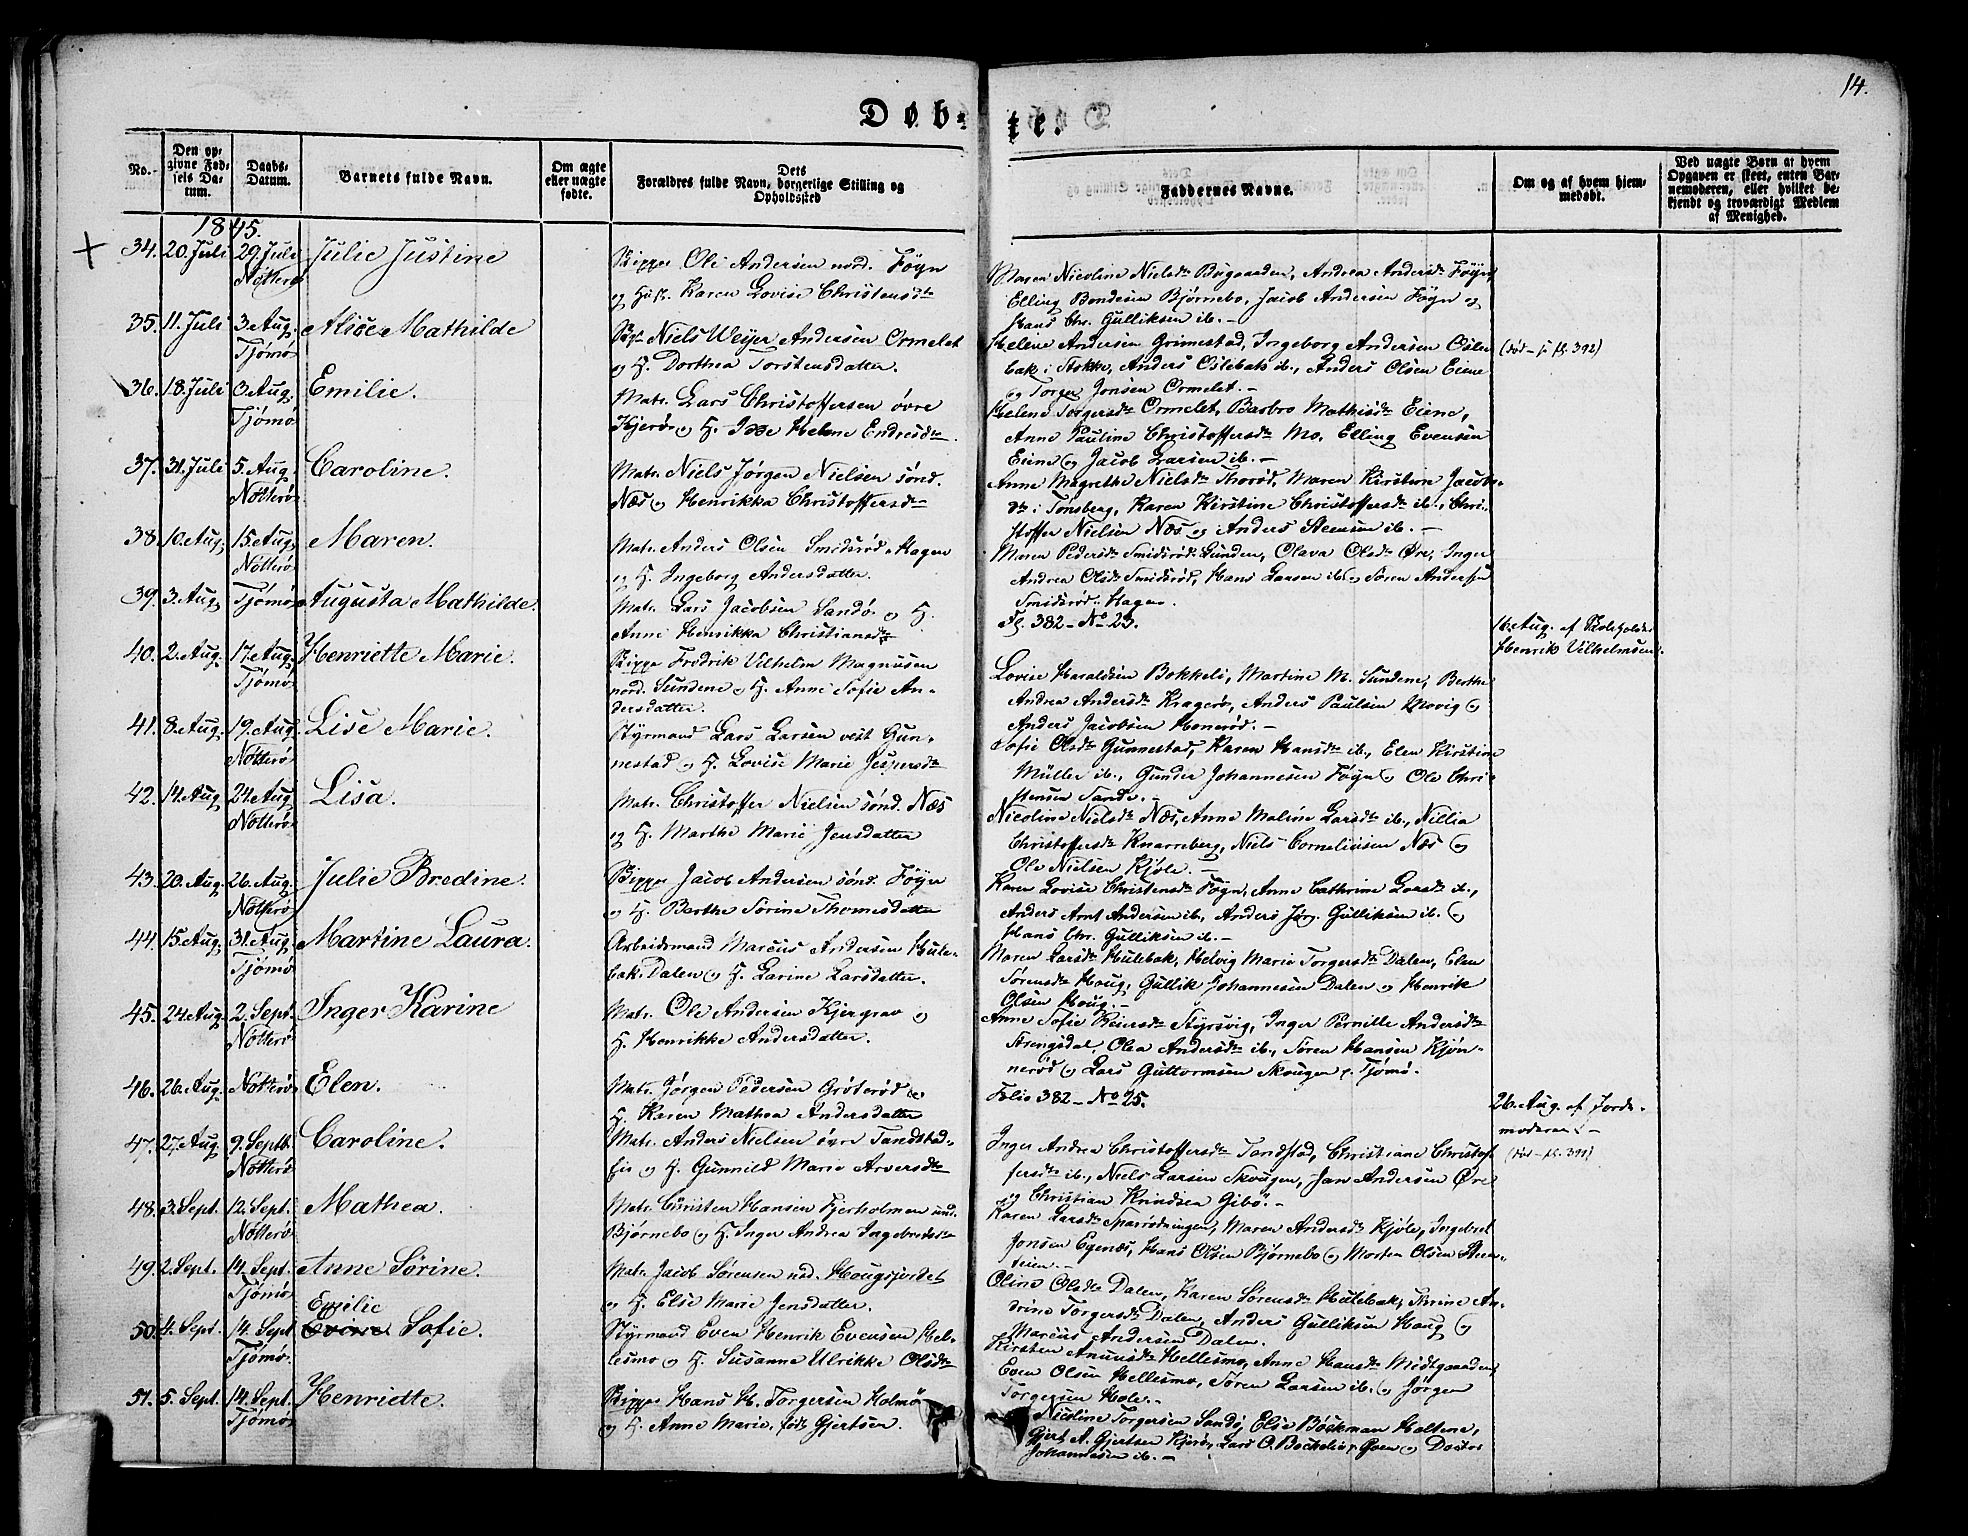 14.
Døbte.
No.
Den opgivne Fødsels Datum.
Daabs-Datum.
Barnets fulde Navn.
Om ægte eller uægte fødte.
Dets Forældres fulde Navn, borgerlige Stilling og Opholdssted
Faddernes Navne.
Om og af hvem hjemmedøbt.
Ved uægte Børn at hvem Opgaven er skeet, enten Barnemoderen, eller hvilket bekjendt og troværdigt Medlem af Menighed.
1845.
34. 20. Juli 29 Juli Julie Justine
Nötterö
Skipper Ole Andersen nord. Föyn
og Hüst. Karen Lovise Christensdtr
Maren Nicoline Nielsdr Bugaarden, Andrea Andersdr Föyn,
Elling Bendesen Björnebo, Jacob Andersen Föyn og
Hans Chr. Gulliksen ib. –
35. 11. Juli 3. Aug. Alise Mathilde
Tjömö
Niels Weyer Andersen Ormelet
og H. Dorthea Torstensdatter.
Helene Andersen Grimestad, Ingeborg Andersen Osle-
bak i Stokke, Anders Oslebak ib., Anders Olsen Eiene
og Torger Jonsen Ormelet. –
(död – fl. 392)
36. 18. Juli 3. Aug. Emilie.
Tjömö
Matr. Lars Christoffersen övre
Kjerö og H. Helene Endresdtr.
Helene Torgersdr Ormelet, Barbro Mathisdr Eiene,
Anne Pauline Christoffersdr Mo, Elling Evensen
Eiene og Jacob Larsen ib. –
37. 31. Juli 5. Aug. Caroline.
Nötterö
Matr. Niels Jörgen Nielsen sönd.
Næs og Henrikka Christoffersdr
Anne Magrethe Nielsdr Thoröd, Maren Kirstine Jacobs-
dr i Tönsberg, Karen Kirstine Christoffersdr ib., Chri-
stoffer Nielsen Næs og Anders Steensen ib. –
38. 10. Aug. 15. Aug. Maren.
Nötterö
Matr. Anders Olsen Smidsröd-Hagen
og H. Ingeborg Andersdatter.
Maren Pedersdr Smidsröd-Lunden, Olava Olsdr Öre, Inger
Andrea Olsdr Smidsröd, Hans Larsen ib. og Sören Andersen
Smidsröd-Hagen.
39. 3. Aug. Tjömö Augusta Mathilde.
Matr. Lars Jacobsen Sandö og H.
Anne Henrikka Christiansdr
Fl. 382 – No 23.
16. Aug. af Skoleholder
Henrik Vilhelmsen.
40. 2. Aug. 17. Aug. Henriette Marie.
Tjömö
Skipper Fredrik Vilhelm Magnusen
nord. Sundene og H. Anne Sofie An-
dersdatter.
Lovise Haraldsen Bokkeli, Martine M. Sundene, Berthe
Andrea Andersdr Kragerö, Anders Paulsen Movig og
Anders Jacobsen Honeröd. –
41. 8. Aug. 19. Aug. Lise Marie.
Nötterö
Styrmand Lars Larsen vest Gun-
nestad og H. Lovise Marie Jespersdr
Sofie Olsdr Gunnestad, Karen Hansdr ib., Elen Kirstine
Müller ib., Gunder Johannesen Föyn og Ole Chri-
stensen Sande. –
42. 14. Aug. 24. Aug. Lisa.
Nötterö
Matr. Christoffer Nielsen sönd. Næs
og H. Marthe Marie Jensdatter
Nicoline Nielsdr Næs, Anne Maline Larsdr ib., Nillia
Christoffersdr Knarreberg, Niels Corneliusen Næs og
Ole Nielsen Kjöle. –
43. 20. Aug. 26. Aug. Julie Bredine.
Nötterö
Skipper Jacob Andersen sönd. Föyn
og H. Berthe Sorine Thomesdatter
Karen Lovise Christensdr Föyn, Anne Cathrine Larsdr ib.,
Anders Arnt Andersen ib., Anders Jörg. Gulliksen ib. og
Hans Chr. Gulliksen ib. –
44. 15. Aug. 31. Aug. Martine Laura.
Tjömö
Arbeidsmand Marcus Andersen Hule-
bak-Dalen og H. Larine Larsdatter.
Maren Larsdr Hulebak, Helvig Marie Torgersdr Dalen, Elen
Sörensdr Houg, Gullik Johannesen Dalen og Henrik
Olsen Houg. –
45. 24. Aug. 2. Sept. Inger Karine
Nötterö
Matr. Ole Andersen Kjergrav og
H. Henrikke Andersdatter.
Anne Sofie Reiersdr Styrsvig, Inger Pernille Andersdr
Strengsdal, Olea Andersdr ib., Sören Hansen Kjön-
neröd og Lars Guttormsen Skougen p. Tjömö.
46. 26. Aug. Nötterö Elen.
Matr. Jörgen Pedersen Gröteröd og
H. Karen Mathea Andersdatter
Folio 382 – No 25.
26. Aug. af Jorde-
moderen. –
47. 27. Aug. 9. Septb. Caroline.
Nötterö
Matr. Anders Nielsen övre Tandstad-
eie og H. Gunnild Marie Arversdr
Inger Andrea Christoffersdr Tandstad, Christiane Christof-
fersdr ib., Niels Larsen Skougen, Jan Andersen Öre
og Christian Knudsen Gibö. –
(död – fl. 391)
48. 3. Sept. 12. Sept. Mathea.
Nötterö
Matr. Christen Hansen Fjerholmen und.
Björnebo og H. Inger Andrea Ingebretsdr
Karen Larsdr Sparrodningen, Maren Andersdr Kjöle, Ingebret
Jonsen Egenæs, Hans Olsen Björnebo og Morten Olsen Steen-
eien. –
49. 2. Sept. 14. Sept. Anne Sörine.
Tjömö
Matr. Jacob Sörensen nød. Hougsjordet
og H. Else Marie Jensdatter.
Oline Olsdr Dalen, Karen Sörensdr Hulebak, Thrine An-
drine Torgersdr Dalen, Anders Gulliksen Houg og
Marcus Andersen Dalen.
50. 4. Sept. 14. Sept Emilie Sofie.
Tjömö.
Styrmand Even Henrik Evensen Hel-
lesmo og H. Susanne Ulrikke Olsdr
Kirsten Amundsdr Hellesmo, Anne Hansdr Midtgaarden,
Even Olsen Hellesmo, Sören Larsen ib. og Jörgen
Torgersen Hole. –
51. 5. Sept. 14. Sept. Henriette.
Tjömö
Skipper Hans H. Torgersen Holmö
og H. Anne Marie, föd Gjertsen.
Nicoline Torgersen Sandö, Else Böckman Holtene,
Gjert A. Gjertsen Kjerö, Lars O. Bockelie p. Goen og Doctor
Johannesen ib. –